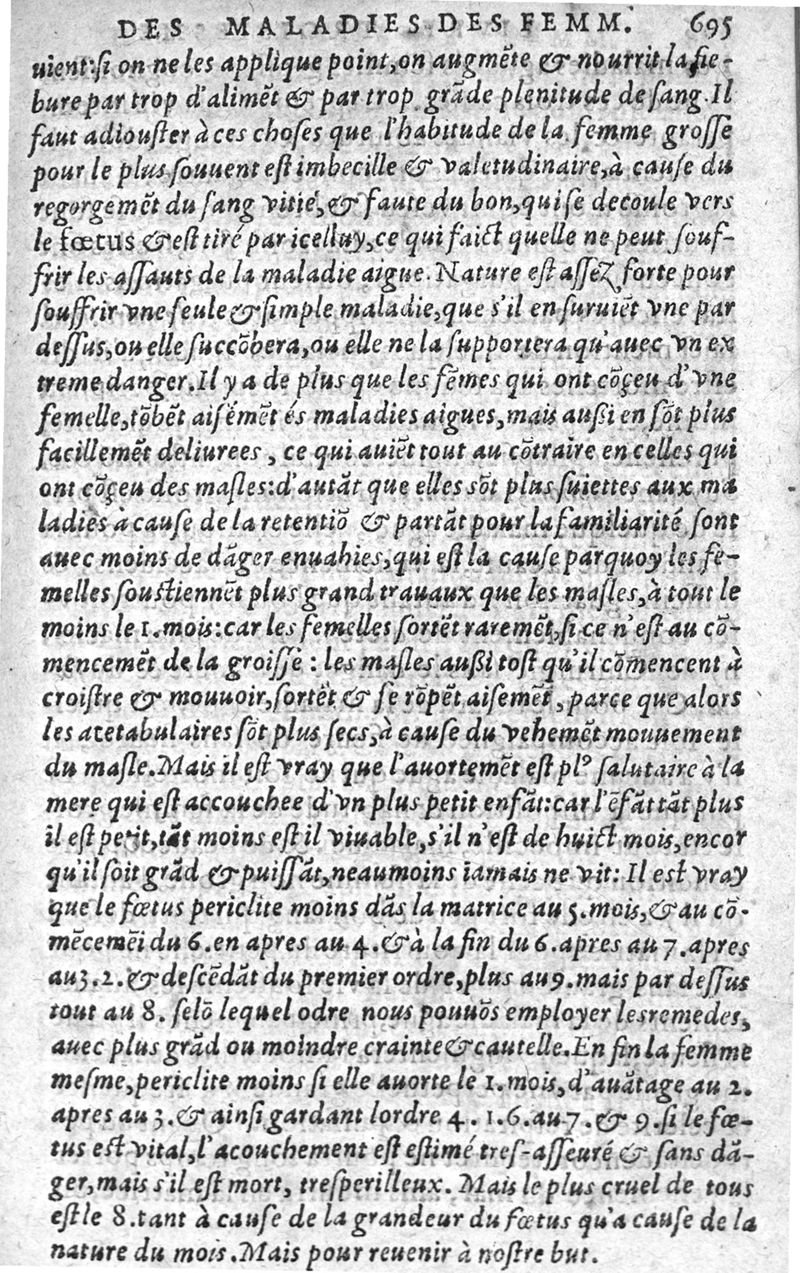 DES MALADIES DES FEMM. 695
uient:si on ne les applique point,on augmẽte & nourrit la fie-
bure par trop d'alimẽt & par trop grãde plenitude de sang.Il
faut adiouster à ces choses que l'habitude de la femme grosse
pour le plus souuent est imbecille & valetudinaire,à cause du
regorgemẽt du sang vitié,& faute du bon,qui se decoule vers
le fœtus & est tiré par icelluy,ce qui faict quelle ne peut souf-
frir les assauts de la maladie aigue.Nature est assez forte pour
souffrir vne seule & simple maladie,que s'il en suruiẽt vne par
dessus,ou elle succõbera,ou elle ne la supportera qu'auec vn ex
treme danger.Il y a de plus que les fẽmes qui ont cõçeu d'vne
femelle,tõbẽt aisẽmẽt és maladies aigues,mais aussi en sõt plus
facillemẽt deliurees, ce qui auiẽt tout au cõtraire en celles qui
ont cõçeu des masles:d'autãt que elles sõt plus suiettes aux ma
ladies à cause de la retentiõ & partãt pour la familiarité sont
auec moins de dãger enuahies,qui est la cause parquoy les fe-
melles soustiennẽt plus grand trauaux que les masles,à tout le
moins le 1.mois:car les femelles sortẽt raremẽt,si ce n'est au cõ-
mencemẽt de la groisse: les masles aussi tost qu'il cõmencent à
croistre & mouuoir,sortẽt & se rõpẽt aisemẽt, parce que alors
les acetabulaires sõt plus secs,à cause du vehemẽt mouuement
du masle.Mais il est vray que l'auortemẽt est pl⁹ salutaire à la
mere qui est accouchee d'vn plus petit enfãt:car l'ẽfãt tãt plus
il est petit,tãt moins est il viuable,s'il n'est de huict mois,encor
qu'il soit grãd & puissãt,neaumoins iamais ne vit: Il est vray
que le fœtus periclite moins dãs la matrice au 5.mois,& au cõ-
mẽcemẽi du 6.en apres au 4.& à la fin du 6.apres au 7.apres
au 3.2.& descẽdãt du premier ordre,plus au 9.mais par dessus
tout au 8. selõ lequel odre nous pouuõs employer les remedes,
auec plus grãd ou moindre crainte & cautelle.En fin la femme
mesme,periclite moins si elle auorte le 1.mois,d'auãtage au 2.
apres au 3.& ainsi gardant lordre 4. 1.6.au 7.& 9.si le fœ-
tus est vital,l'acouchement est estimé tres-asseuré & sans dã-
ger,mais s'il est mort, tresperilleux. Mais le plus cruel de tous
est le 8.tant à cause de la grandeur du fœtus qu'a cause de la
nature du mois.Mais pour reuenir à nostre but.